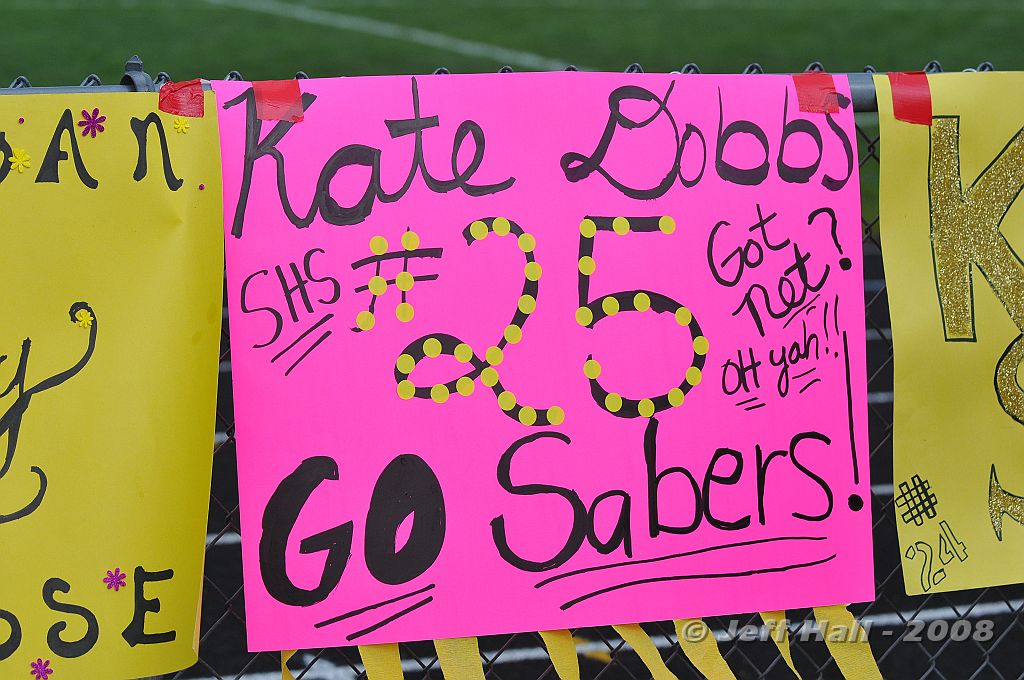 Kate Dobbs
SHS
#25
Got
net?
OH yah!!
GO Sabers!
AN
OSE
K
#
24
© Jeff Hall - 2008